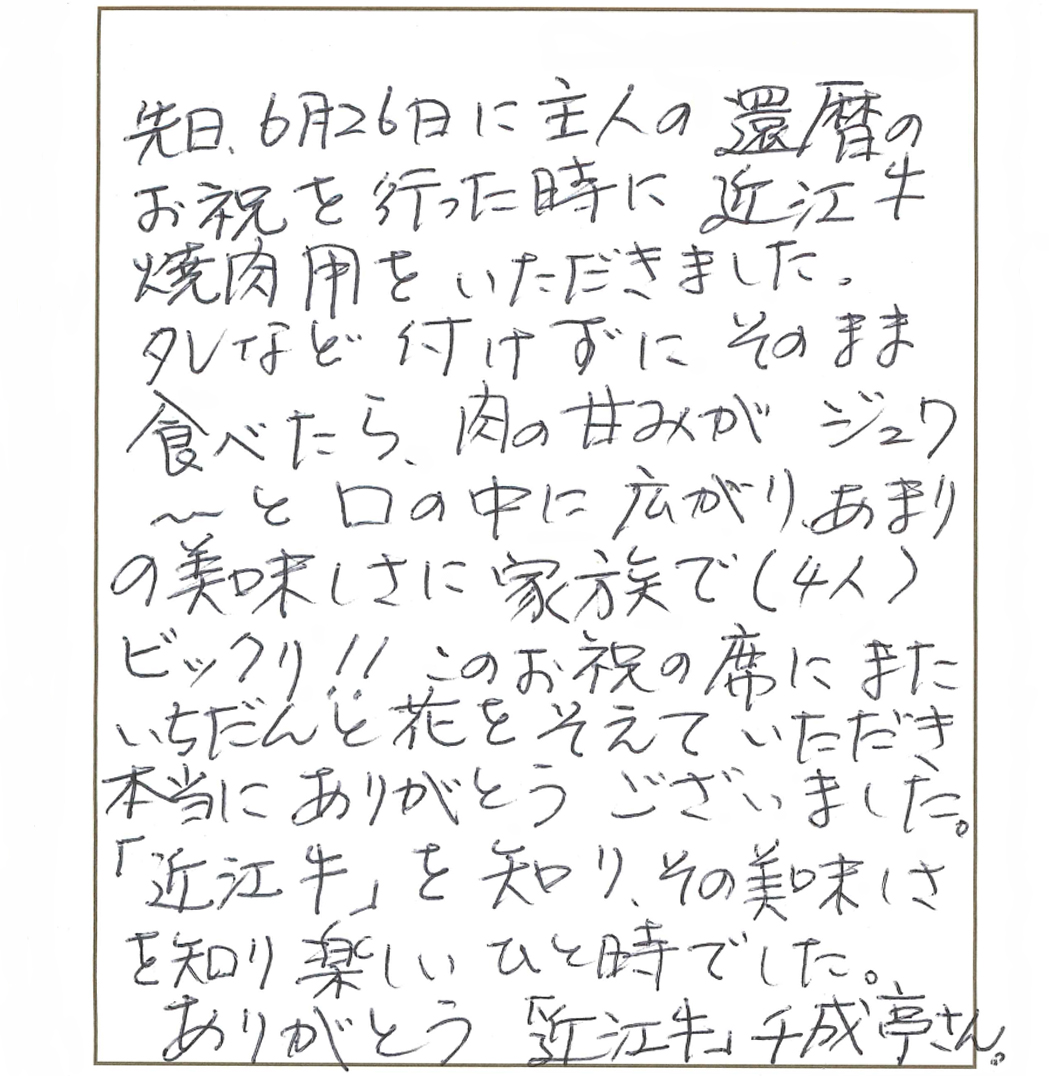 先日、6月26日に主人の還暦の
お祝を行った時に近江牛
焼肉用をいただきました。
タレなど付けずにそのまま
食べたら、肉の甘みがジュワ
〜と口の中に広がり、あまり
の美味しさに家族で(4人)
ビックリ!!このお祝の席にまた
いちだんと花をそえていただき
本当にありがとうございました。
「近江牛」を知り、その美味しさ
を知り楽しいひと時でした。
ありがとう「近江牛」千成亭さん。